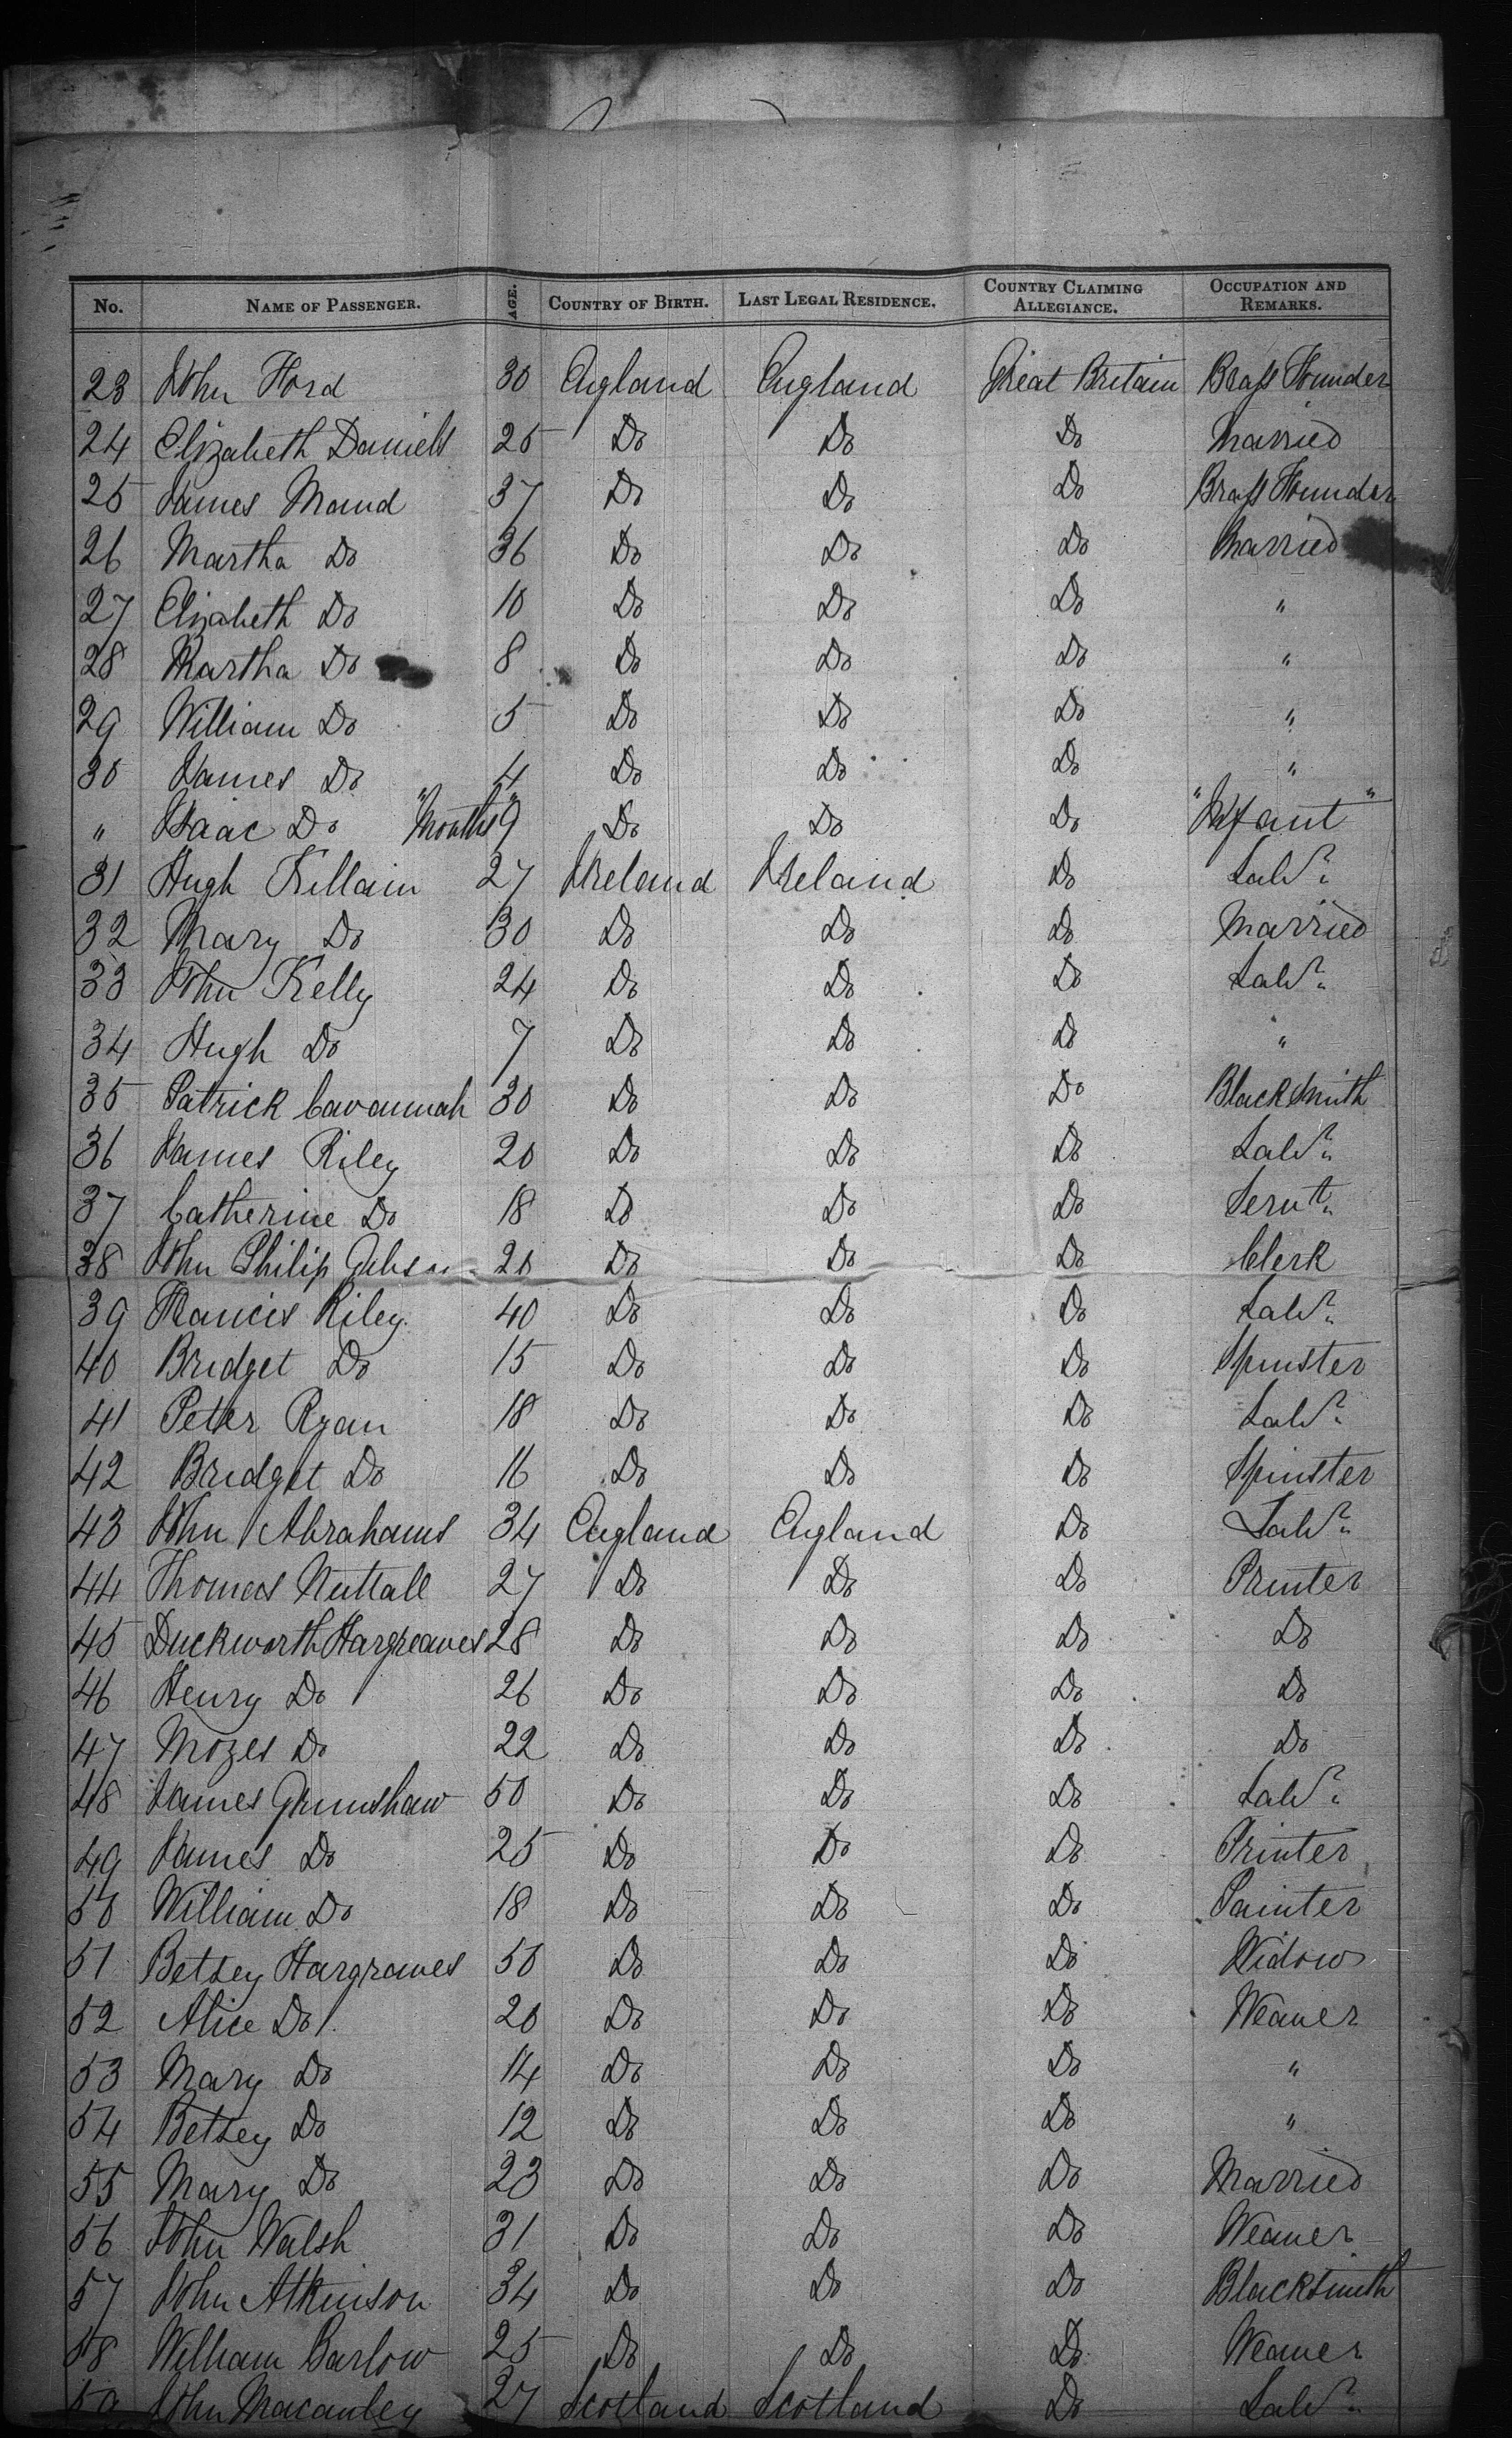 No. NAME OF PASSENGER. AGE. COUNTRY OF BIRTH. LAST LEGAL RESIDENCE. COUNTRY CLAIMING ALLEGIANCE. OCCUPATION AND REMARKS.
23 John Ford 30 England England Great Britain Brass Founder
24 Elizabeth Daniels 25 Do Do Do Married
25 James Maud 37 Do Do Do Brass Founder
26 Martha Do 36 Do Do Do Married
27 Elizabeth Do 10 Do Do Do "
28 Martha Do 8 Do Do Do "
29 William Do 5 Do Do Do "
30 James Do 4 Do Do Do "
" Isaac Do "Months" 9 Do Do Do "Infant"
31 Hugh Killain 27 Ireland Ireland Do Labr.
32 Mary Do 30 Do Do Do Married
33 John Kelly 24 Do Do Do Labr.
34 Hugh Do 7 Do Do Do "
35 Patrick Cavannah 30 Do Do Do Blacksmith
36 James Riley 20 Do Do Do Labr.
37 Catherine Do 18 Do Do Do Servt.
38 John Philip Gibson 20 Do Do Do Clerk
39 Francis Riley. 40 Do Do Do Labr.
40 Bridget Do 15 Do Do Do Spinster
41 Peter Ryan 18 Do Do Do Labr.
42 Bridget Do 16 Do Do Do Spinster
43 John Abrahams 34 England England Do Labr.
44 Thomas Nuttall 27 Do Do Do Printer
45 Duckworth Hargreaves 28 Do Do Do Do
46 Henry Do 26 Do Do Do Do
47 Mozes Do 22 Do Do Do Do
48 James Grimshaw 50 Do Do Do Labr.
49 James Do 25 Do Do Do Printer
50 William Do 18 Do Do Do Painter
51 Betsey Hargraves 50 Do Do Do Widow
52 Alice Do 20 Do Do Do Weaver
53 Mary Do 14 Do Do Do "
54 Betsey Do 12 Do Do Do "
55 Mary Do 23 Do Do Do Married
56 John Walsh 31 Do Do Do Weaver
57 John Atkinson 34 Do Do Do Blacksmith
58 William Barlow 25 Do Do Do Weaver
59 John Macauley 27 Scotland Scotland Do Labr.